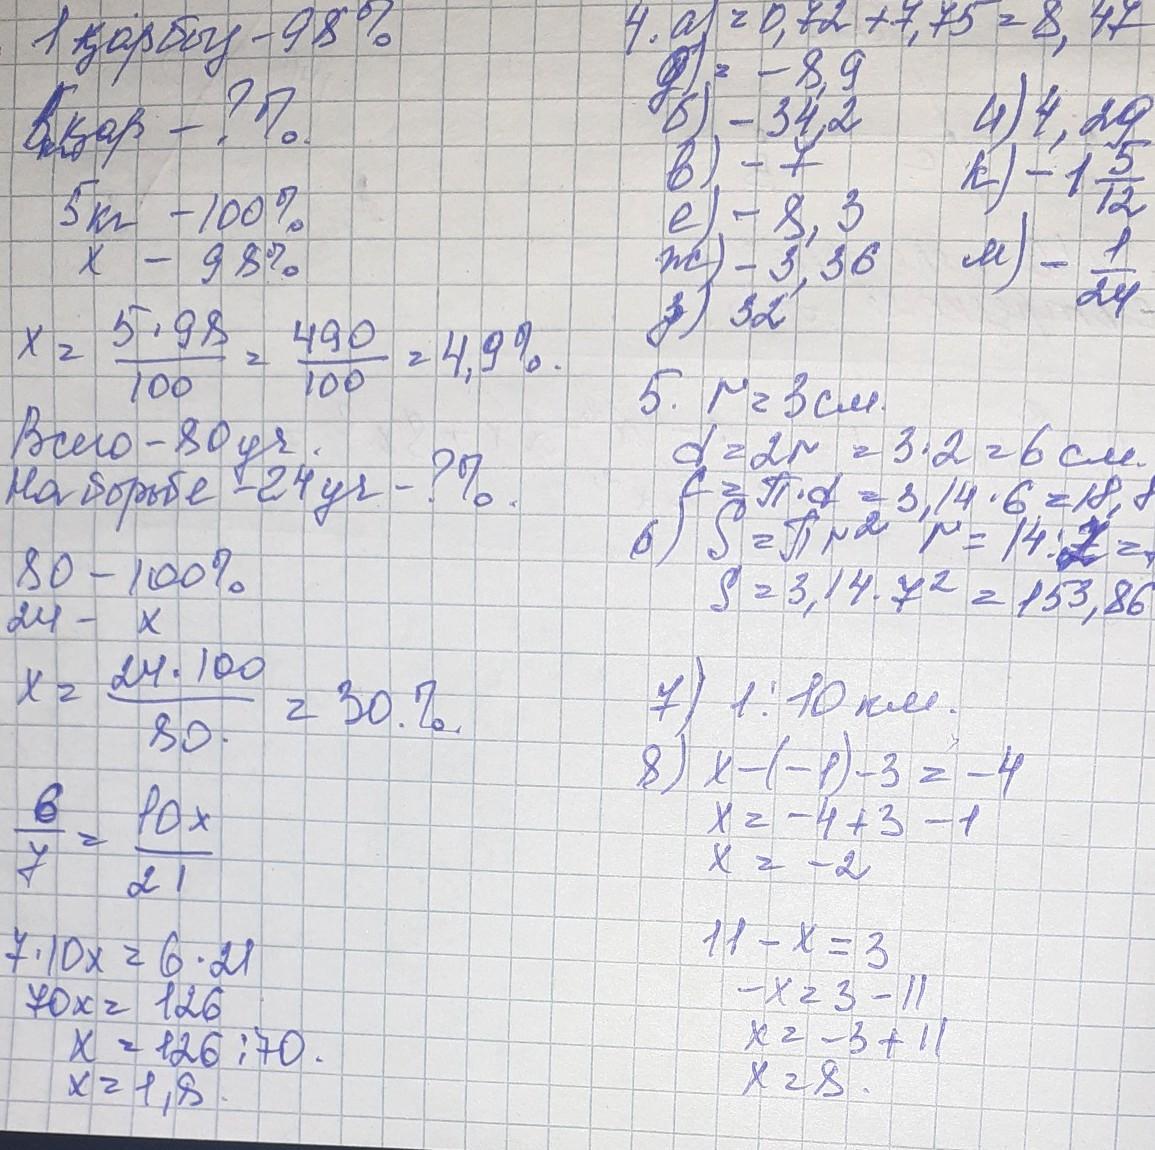 1 қарбыз - 98%
5 қар - ?%.
5кг - 100%
x - 98%
x = 5·98/100 = 490/100 = 4,9%.
Всего - 80 уч.
На борьбе - 24 уч - ?%.
80 - 100%
24 - x
x = 24·100/80 = 30.%.
6/7 = 10x/21
7·10x = 6·21
70x = 126
x = 126:70.
x = 1,8.
4. а) = 0,72 + 7,75 = 8,47
д) = -8,9
б) - 34,2 и) 4,29
в) - 7 к) - 1 5/12
е) - 8,3
ж) - 3,36 м) - 1/24
з) 32
5. r = 3 см.
d = 2r = 3·2 = 6 см.
C = П·d = 3,14·6 = 18,8
6) S = Пr² r = 14:2 =
S = 3,14·7² = 153,86
7) 1:10 км.
8) x-(-1)-3 = -4
x = -4+3-1
x = -2
11 - x = 3
-x = 3 - 11
x = -3 + 11
x = 8.